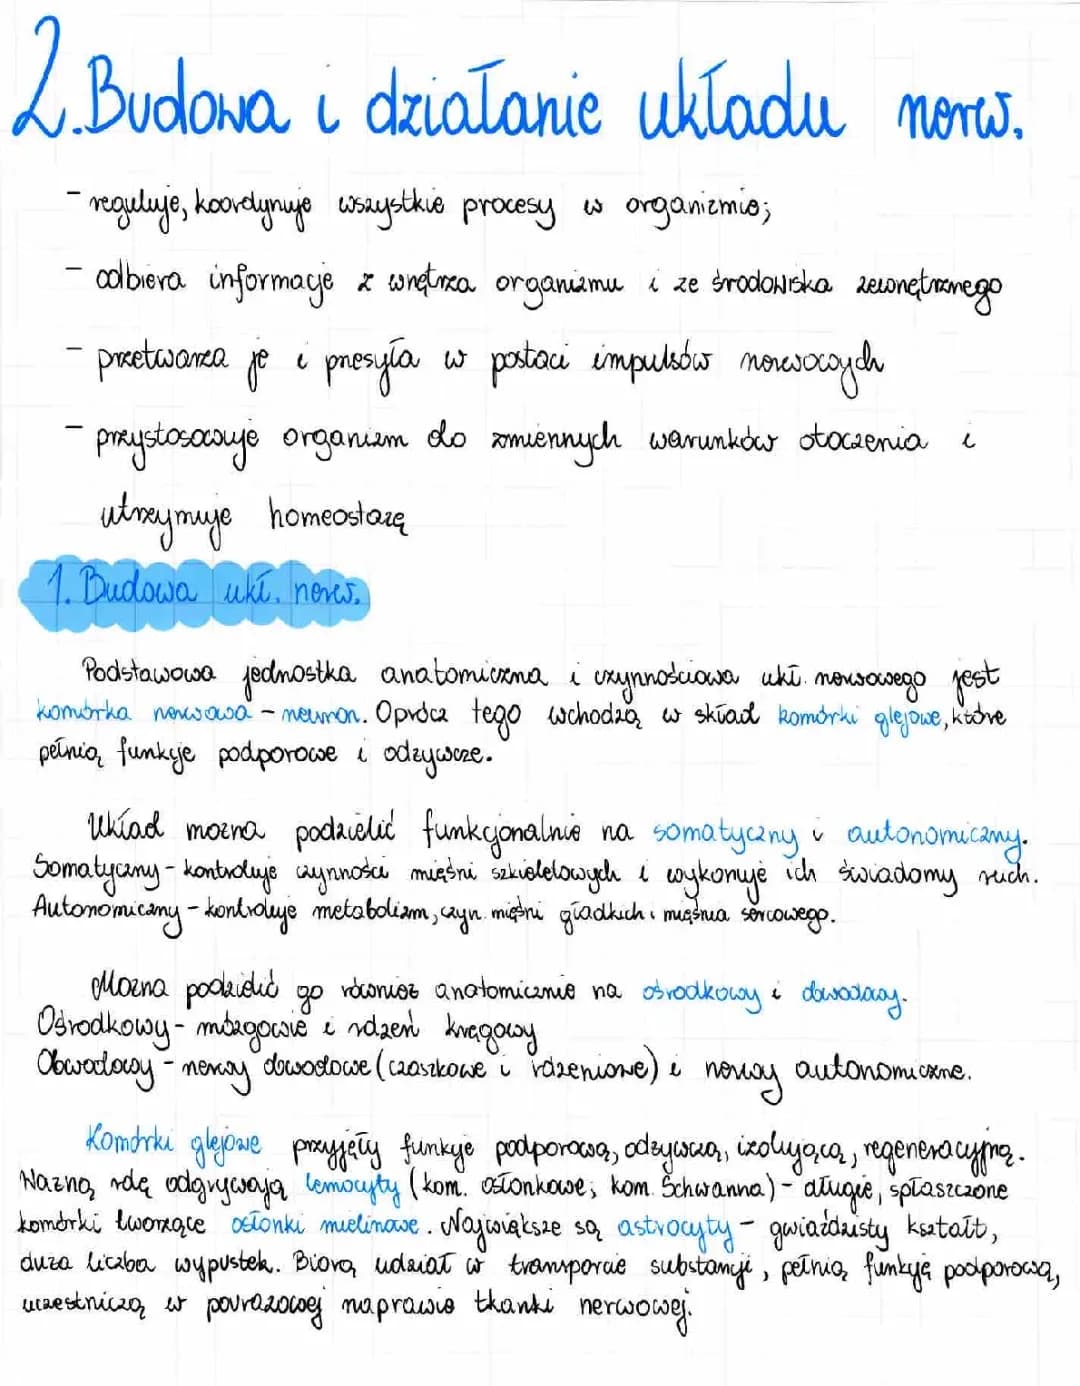 2. Budowa i działanie układu nerw.
- reguluje, koordynuje wszystkie procesy w organizmie;
- odbiera informacje z wnętrza organizmu i ze środowiska zewnętrznego
- przetwarza je i przesyła w postaci impulsów nerwowych
- przystosowuje organizm do zmiennych warunków otoczenia i
utrzymuje homeostazę
1. Budowa ukł. nerw.
Podstawowa jednostka anatomiczna i czynnościowa ukł. nerwowego jest
komórka nerwowa - neuron. Oprócz tego wchodzą w skład komórki glejowe, które
pełnią funkcje podporowe i odżywcze.
Układ można podzielić funkcjonalnie na somatyczny i autonomiczny.
Somatyczny - kontroluje czynności mięśni szkieletowych i wykonuje ich świadomy ruch.
Autonomiczny - kontroluje metabolizm, czyn. mięśni gładkich i mięśnia sercowego.
Można podzielić go również anatomicznie na ośrodkowy i obwodowy.
Ośrodkowy - mózgowie i rdzeń kręgowy
Obwodowy - nerwy obwodowe (czaszkowe i rdzeniowe) i nerwy autonomiczne.
Komórki glejowe przyjęły funkcje podporową, odżywczą, izolującą, regeneracyjną.
Ważną rolę odgrywają lemocyty (kom. osłonkowe; kom. Schwanna) - długie, spłaszczone
komórki tworzące osłonki mielinowe. Największe są astrocyty - gwiaździsty kształt,
duża liczba wypustek. Biorą udział w transporcie substancji, pełnią funkcję podporową,
uczestniczą w pourazowej naprawie tkanki nerwowej.